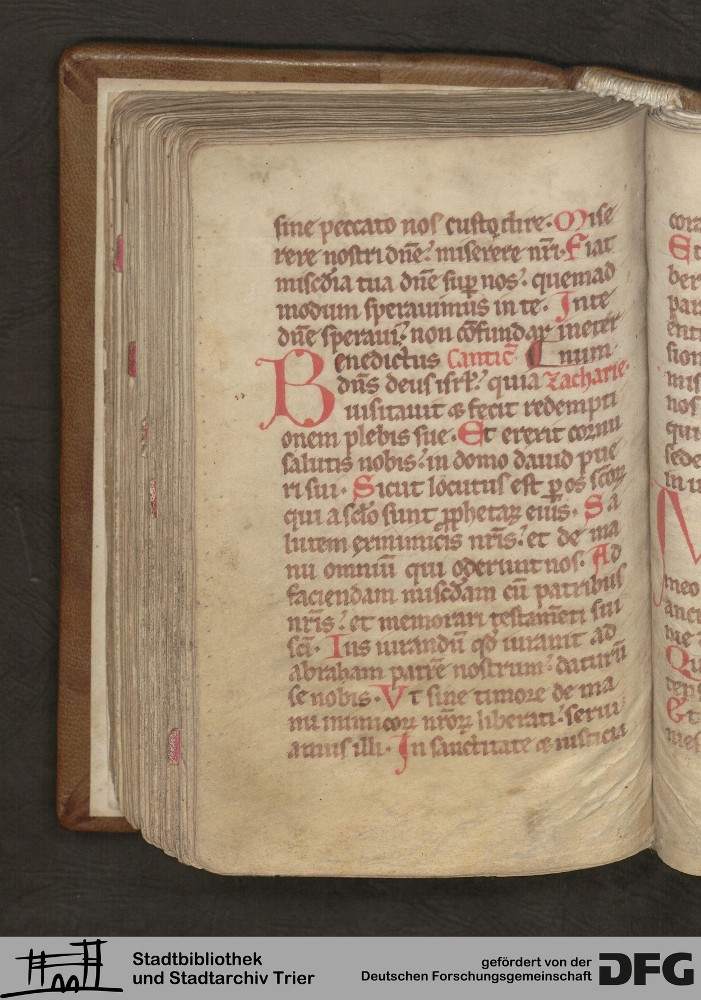 sine peccato nos custodire. Mise
rere nostri dn̄e: miserere nr̄i. Fiat
misc̄dia tua dn̄e suꝑ nos: quemad
modum sperauimus in te. In te
dn̄e speraui: non cōfundar in eter
Benedictus Cantic̄ num.
dn̄s deus isrl̄: quia Zacharie.
uisitauit & fecit redempti
onem plebis sue. Et erexit cornu
salutis nobis: in domo dauid pue
ri sui. Sicut locutus est ꝑ os sc̄oꝝ
qui a sc̄lo sunt ꝓphetaꝝ eius. Sa
lutem ex inimicis nr̄is: et de ma
nu omniū qui oderunt nos. Ad
faciendam misc̄dam cū patribus
nr̄is: et memorari testam̄eti sui
sc̄i. Ius iurandū qd̄ iurauit ad
abraham patrē nostrum: daturū
se nobis. Vt sine timore de ma
nu inimicoꝝ nr̄oꝝ liberati: serui
amus illi. In sanctitate & iusticia
cora
Et
ber
par
enti
sion
mis
nos
qui
sede
in u
M
meo
anci
me
Qu
tens
Et
mes
Stadtbibliothek
und Stadtarchiv Trier
gefördert von der
Deutschen Forschungsgemeinschaft
DFG